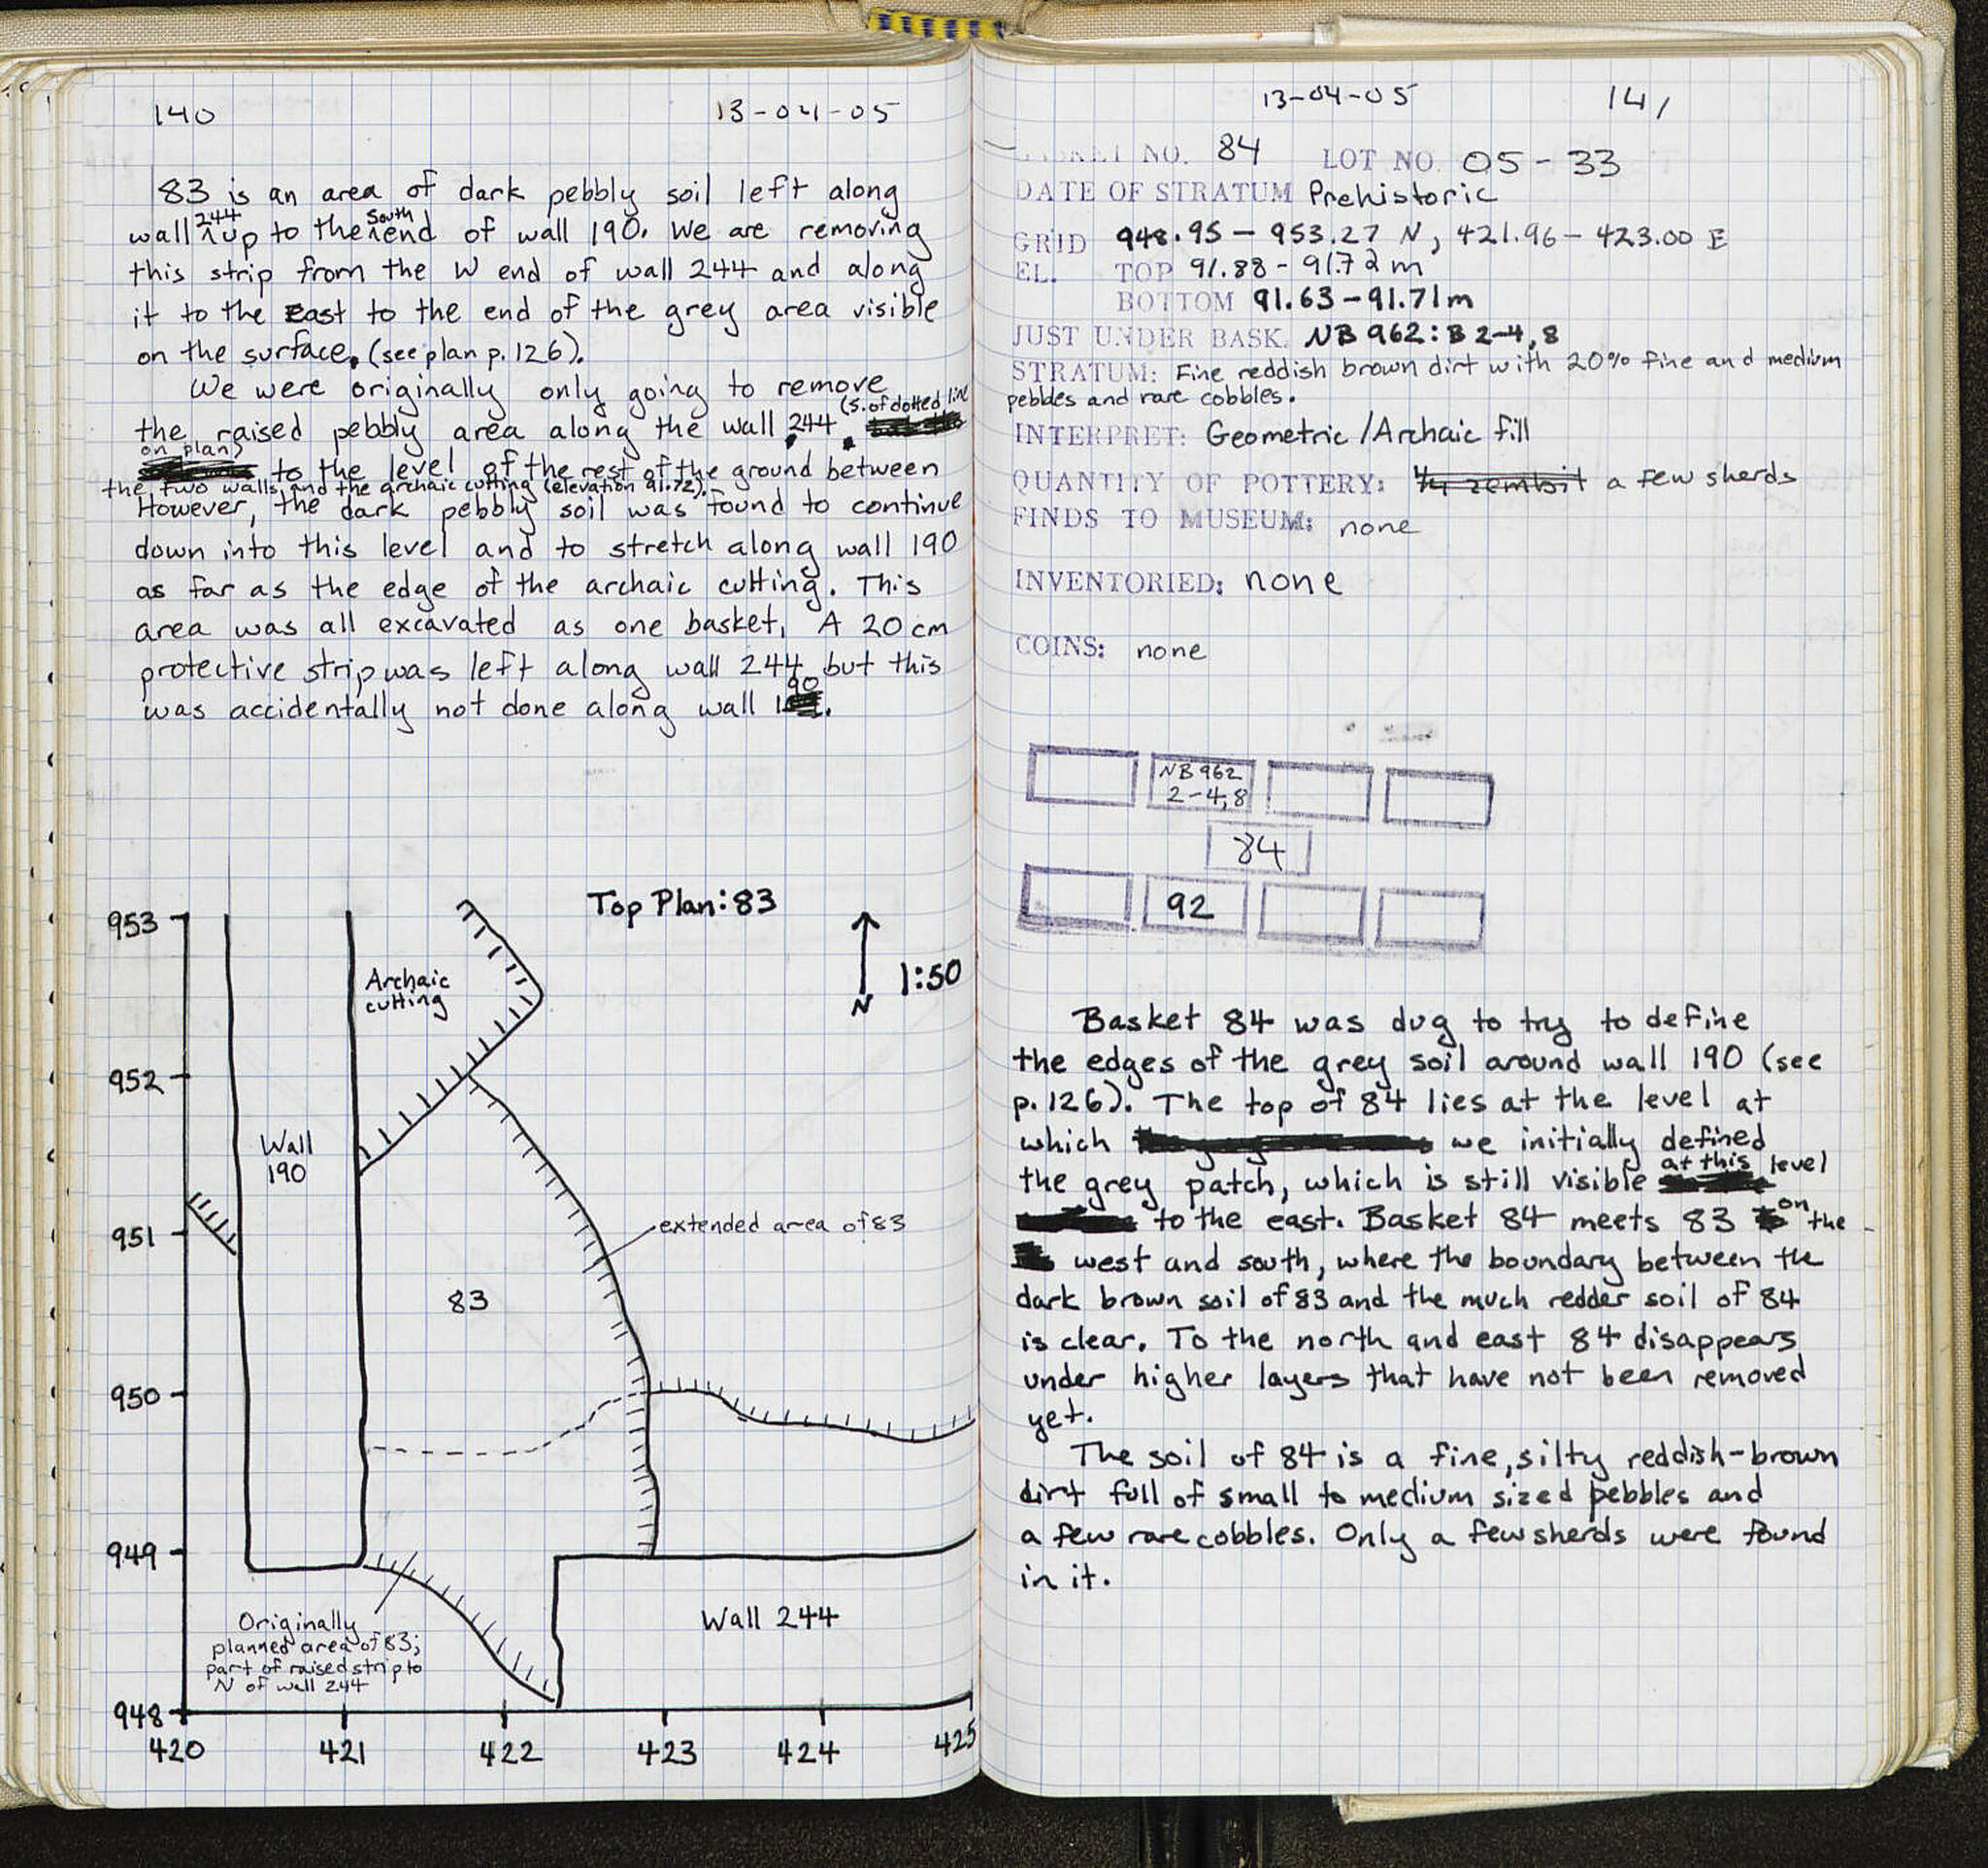 140 13-04-05
83 is an area of dark pebbly soil left along
wall 244 up to the south end of wall 190. We are removing
this strip from the W end of wall 244 and along
it to the East to the end of the grey area visible
on the surface. (see plan p. 126).
We were originally only going to remove
the raised pebbly area along the wall 244 (S. of dotted line
on plan)
to the level of the rest of the ground between
the two walls, and the archaic cutting (elevation 91.72).
However, the dark pebbly soil was found to continue
down into this level and to stretch along wall 190
as far as the edge of the archaic cutting. This
area was all excavated as one basket. A 20 cm
protective strip was left along wall 244, but this
was accidentally not done along wall 190.
Top Plan: 83
N
1:50
953
952
951
950
949
948
420 421 422 423 424 425
Archaic
cutting
Wall
190
extended area of 83
83
Originally
planned area of 83;
part of raised strip to
N of wall 244
Wall 244
13-04-05 141
BASKET NO. 84 LOT NO. 05-33
DATE OF STRATUM Prehistoric
GRID 948.95 - 953.27 N, 421.96 - 423.00 E
EL. TOP 91.88 - 91.72 m
BOTTOM 91.63 - 91.71 m
JUST UNDER BASK. NB 962: B 2-4, 8
STRATUM: Fine reddish brown dirt with 20% fine and medium
pebbles and rare cobbles.
INTERPRET: Geometric / Archaic fill
QUANTITY OF POTTERY: 1/4 zembil a few sherds
FINDS TO MUSEUM: none
INVENTORIED: none
COINS: none
NB 962
2-4, 8
84
92
Basket 84 was dug to try to define
the edges of the grey soil around wall 190 (see
p. 126). The top of 84 lies at the level at
which we initially defined
the grey patch, which is still visible at this level
to the east. Basket 84 meets 83 on the
west and south, where the boundary between the
dark brown soil of 83 and the much redder soil of 84
is clear. To the north and east 84 disappears
under higher layers that have not been removed
yet.
The soil of 84 is a fine, silty reddish-brown
dirt full of small to medium sized pebbles and
a few rare cobbles. Only a few sherds were found
in it.